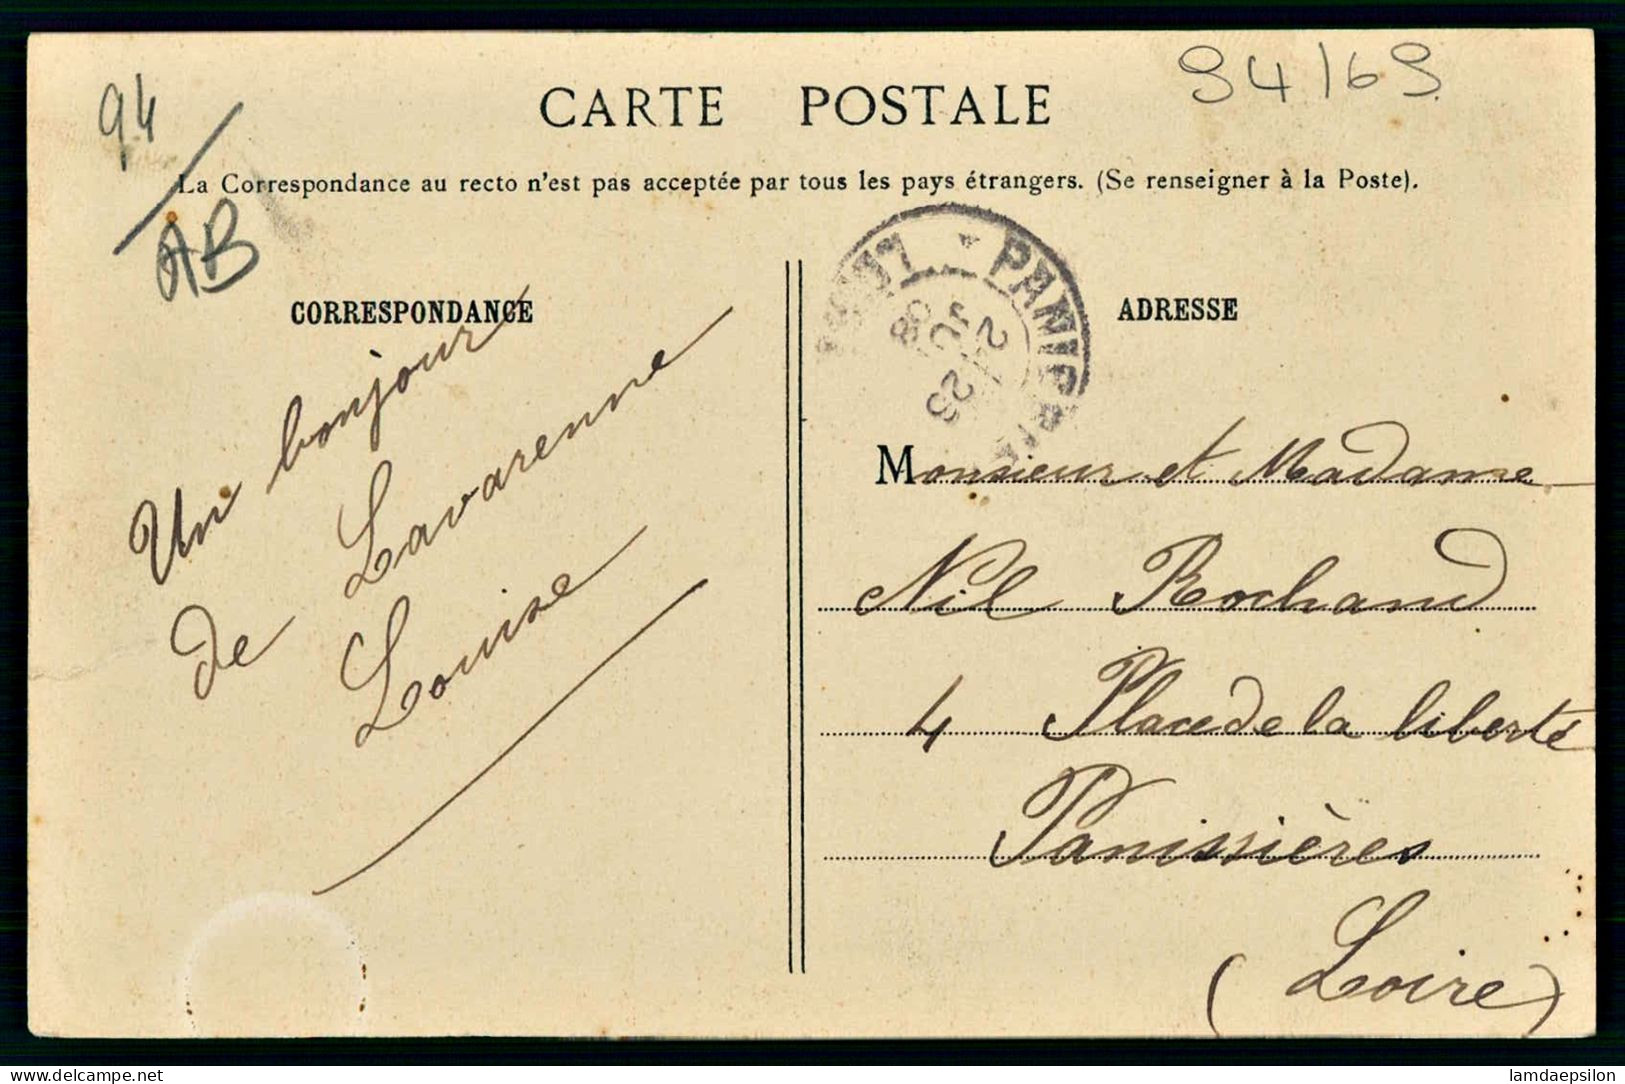 94
94169
AB
CARTE POSTALE
La Correspondance au recto n'est pas acceptée par tous les pays étrangers. (Se renseigner à la Poste).
CORRESPONDANCE
Un bonjour
de Lavarenne
Louise
ADRESSE
Monsieur et Madame
Nil Rochand
4 Place de la liberté
Panissières
(Loire)
delcampe.net
lamdaepsilon